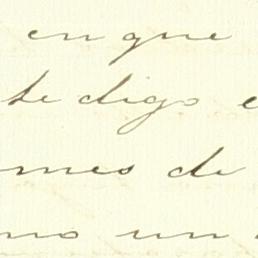 en que
te digo e
mes de
no un